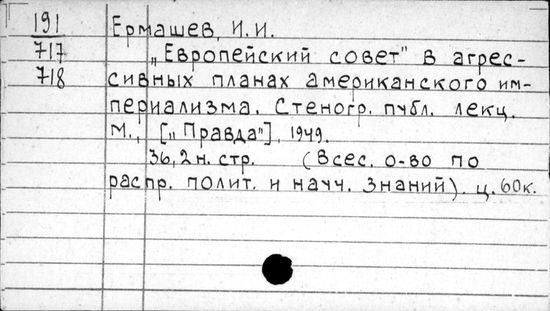 191 Ермашев, И.И.
717 „Европейский совет" в агрес-
718 сивных планах американского им-
периализма. Стеногр. публ. лекц.
М., [„Правда"], 1949.
36,2 н. стр. (Всес. о-во по
распр. полит. и научн. знаний). ц. 60к.